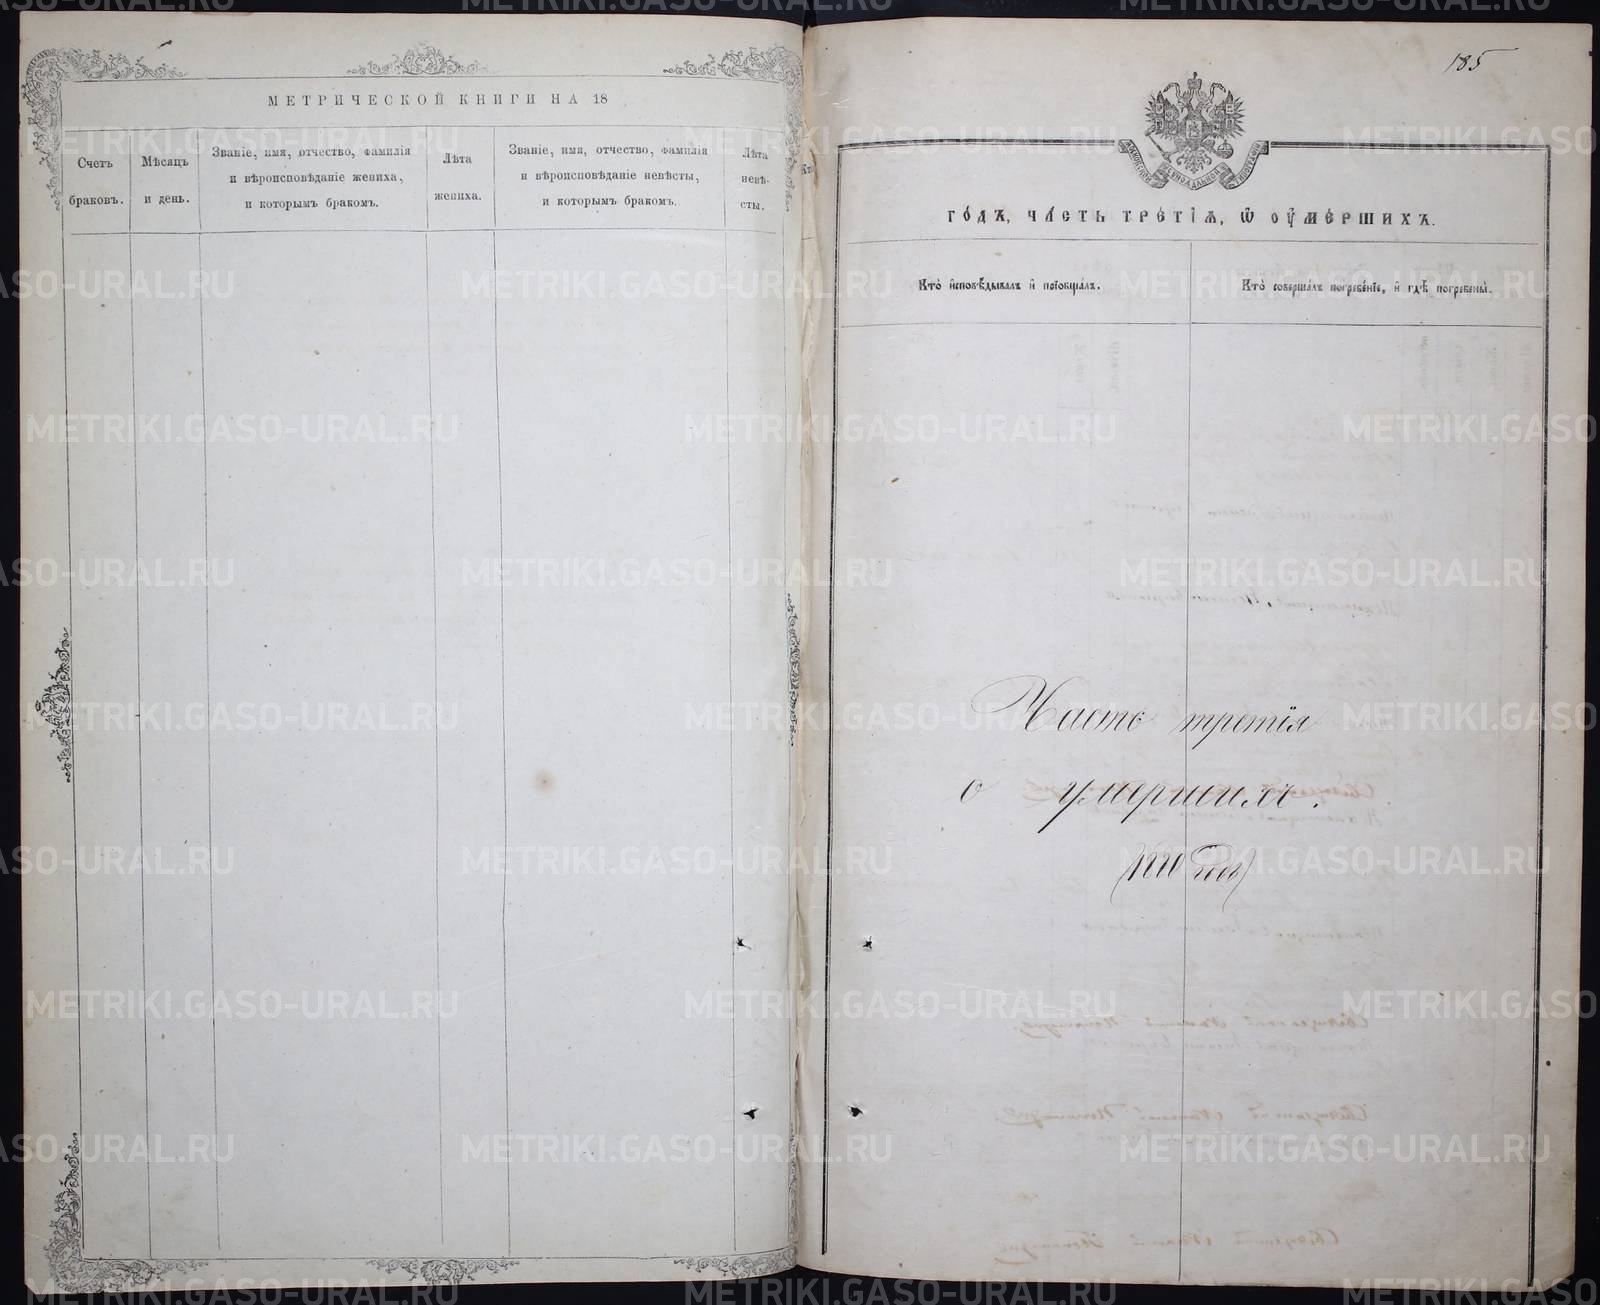 МЕТРИЧЕСКОЙ КНИГИ НА 18
Счетъ
браковъ.
Мѣсяцъ
и день.
Званіе, имя, отчество, фамилія
и вѣроисповѣданіе жениха,
и которымъ бракомъ.
Лѣта
жениха.
Званіе, имя, отчество, фамилія
и вѣроисповѣданіе невѣсты,
и которымъ бракомъ.
Лѣта
невѣ-
сты.
Кто
185
МОСКОВСКОЙ СѴНОДАЛЬНОЙ ТИПОГРАФІИ
го́дъ, ча́сть тре́тїѧ, ѡ҆ оу҆ме́ршихъ.
Кто̀ и҆сповѣ́дывалъ и҆ прїобща́лъ.
Кто̀ соверша́лъ погребе́нїе, и҆ гдѣ̀ погребены̀.
Часть третія
о умершихъ.
годъ
METRIKI.GASO-URAL.RU